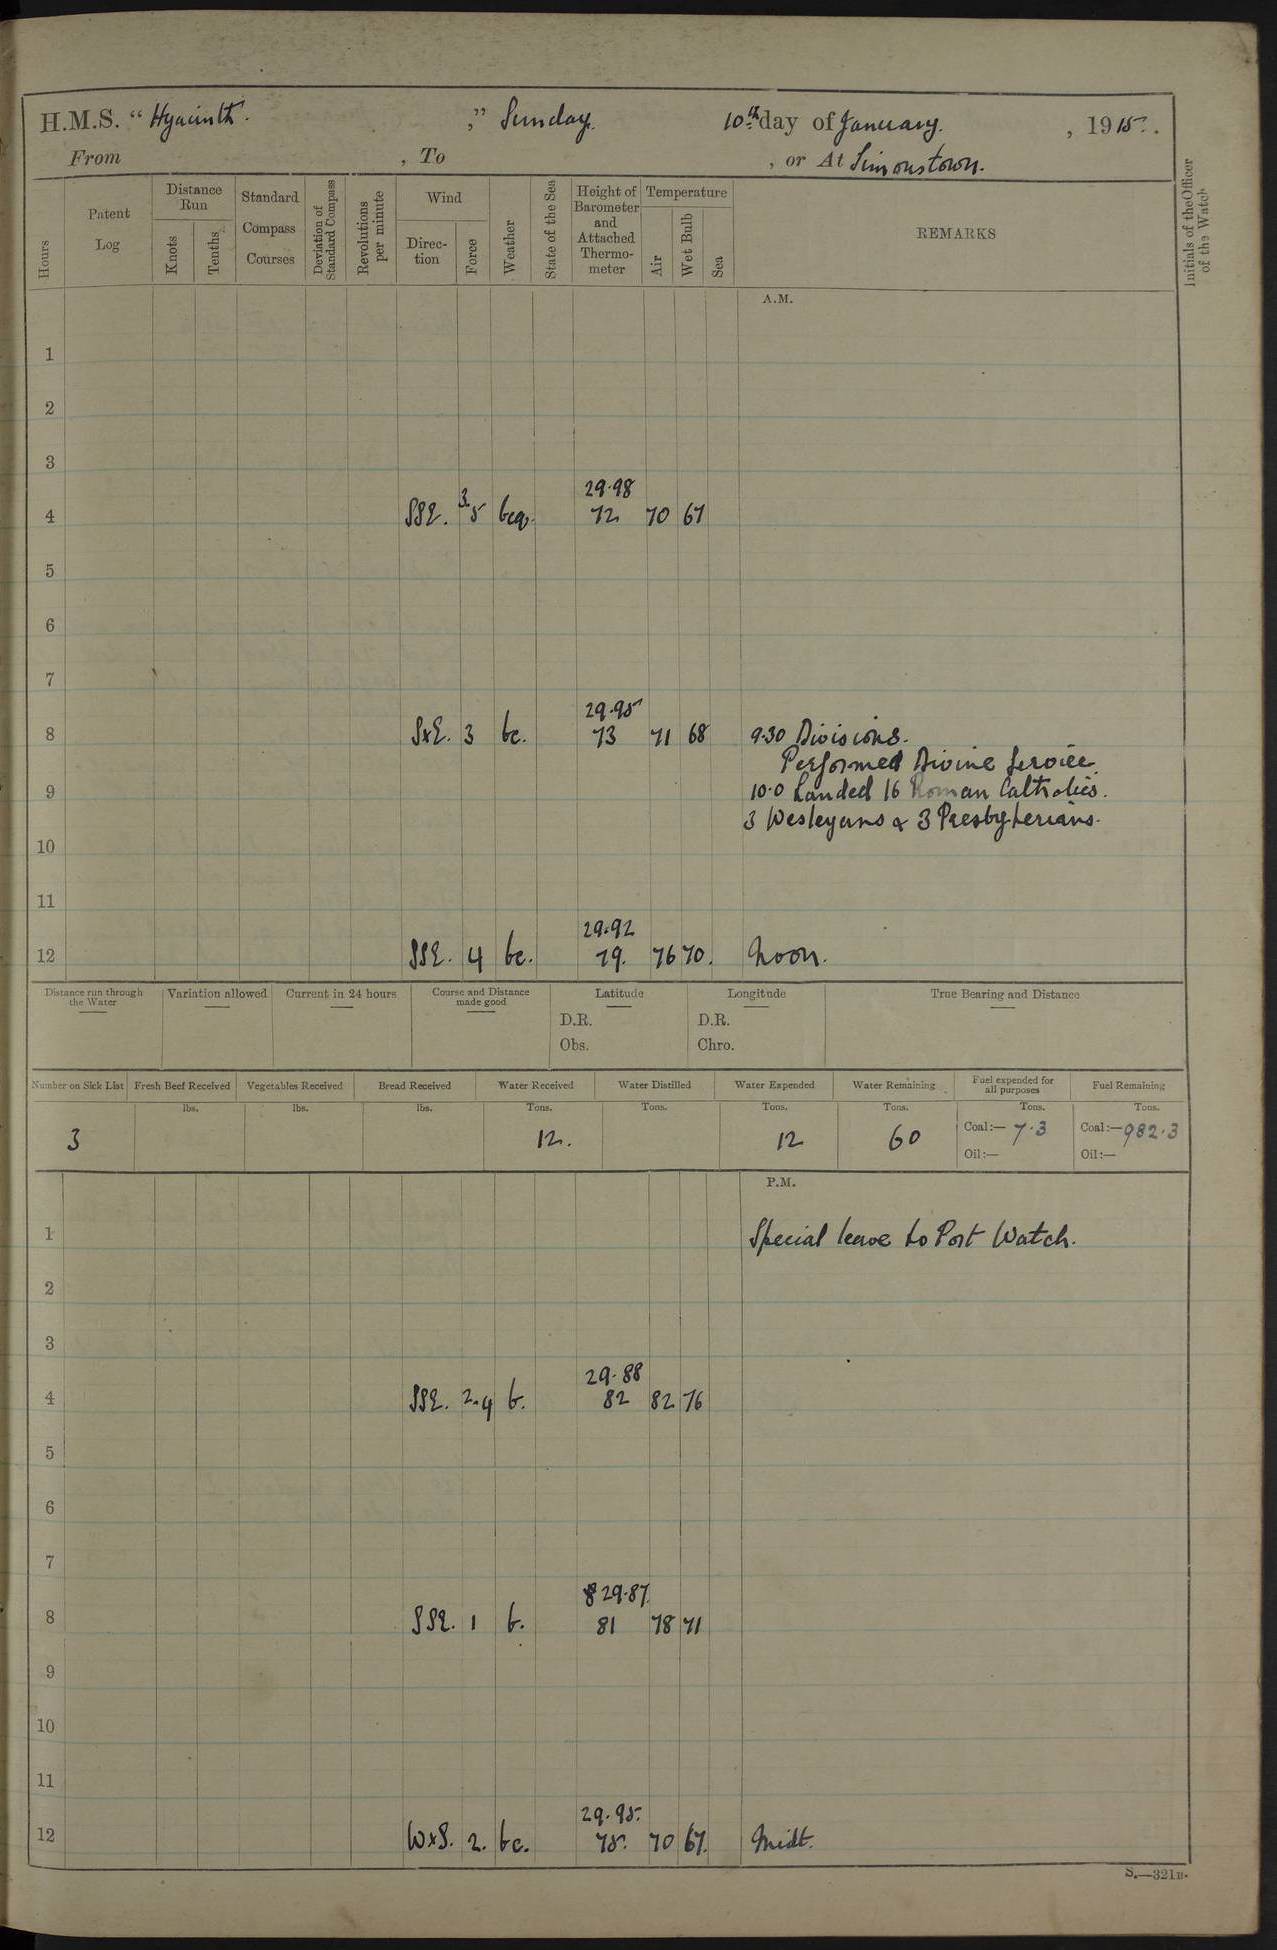 H.M.S. “ Hyacinth. ,” Sunday. 10th day of January. , 1915.
From , To , or At Simonstown.
Hours
Patent Log
Distance Run
Knots
Tenths
Standard Compass Courses
Deviation of Standard Compass
Revolutions per minute
Wind
Direc-tion
Force
Weather
State of the Sea
Height of Barometer and Attached Thermo-meter
Temperature
Air
Wet Bulb
Sea
REMARKS
Initials of the Officer of the Watch
A.M.
1
2
3
29.98
4 SSE. 3.5 bcq. 72 70 67
5
6
7
29.95
8 SxE. 3 bc. 73 71 68 9.30 Divisions.
Performed Divine Service.
9 10.0 Landed 16 Roman Catholics.
3 Wesleyans & 3 Presbyterians.
10
11
29.92
12 SSE. 4 bc. 79. 76 70. Noon.
Distance run through the Water
Variation allowed
Current in 24 hours
Course and Distance made good
Latitude
D.R.
Obs.
Longitude
D.R.
Chro.
True Bearing and Distance
Number on Sick List Fresh Beef Received Vegetables Received Bread Received Water Received Water Distilled Water Expended Water Remaining Fuel expended for all purposes Fuel Remaining
lbs. lbs. lbs. Tons. Tons. Tons. Tons. Tons. Tons.
3 12. 12 60 Coal:— 7.3 Coal:— 982.3
Oil:— Oil:—
P.M.
1 Special leave to Port Watch.
2
3
29.88
4 SSE. 2.4 b. 82 82 76
5
6
7
29.87
8 SSE. 1 b. 81 78 71
9
10
11
29.95.
12 WxS. 2. bc. 75. 70 67. Midt.
S.—321B.